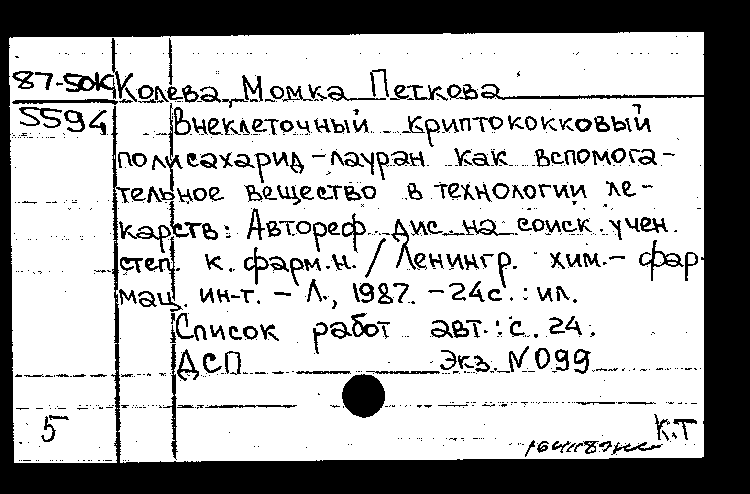 87-50К Колева, Момка Петкова
5594 Внеклеточный криптококковый
полисахарид-лауран как вспомога-
тельное вещество в технологии ле-
карств: Автореф. дис. на соиск. учен.
степ. к. фарм.н. / Ленингр. хим.-фар-
мац. ин-т. - Л., 1987. - 24с.: ил.
Список работ авт.: с. 24.
ДСП Экз. N099
5 К.Т